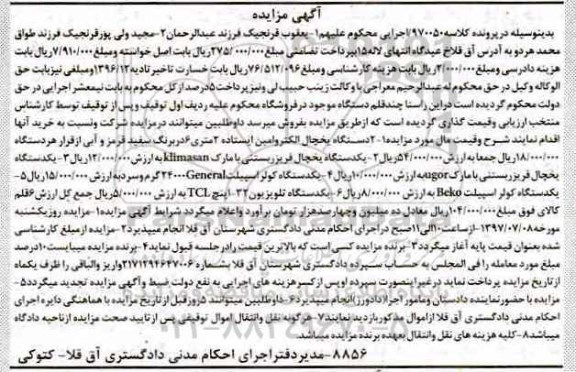 آگهی مزایده
بدینوسیله در پرونده کلاسه ۹۷۰۰۵۰ اجرایی محکوم علیهم ۱-یعقوب قرنجیک فرزند عبدالرحمان ۲-مجید ولی پورقرنجیک فرزند طواق
محمد هردو به آدرس آق قلاخ عیدگاه انتهای لاله ۱۵ بپرداخت تضامنی مبلغ ۲۷۵/۰۰۰/۰۰۰ ریال بابت اصل خواسته ومبلغ ۷/۹۱۰/۰۰۰ ریال بابت
هزینه دادرسی ومبلغ ۲/۰۰۰/۰۰۰ ریال بابت هزینه کارشناسی ومبلغ ۷۶/۵۱۲/۰۹۶ ریال بابت خسارت تاخیر تادیه ۱۳۹۶/۱۲ ومبلغی نیز بابت حق
الوکاله وکیل در حق محکوم له عبدالرحیم معراجی با وکالت زینب حبیب لی ونیز پرداخت ۵ درصد از کل محکوم به بابت نیمعشر اجرایی در حق
دولت محکوم گردیده است دراین راستا چندقلم دستگاه موجود در فروشگاه محکوم علیه ردیف اول توقیف وپس از توقیف توسط کارشناس
منتخب ارزیابی وقیمت گذاری گردیده است که از طریق مزایده بفروش میرسد داوطلبین میتوانند در مزایده شرکت ونسبت به خرید آنها
اقدام نمایند شرح وقیمت مال مورد مزایده ۱-۲ دستگاه یخچال الکتروامین ایستاده ۲ متری ۶ درب رنگ سفید قرمز و آبی از قرار هر دستگاه
۱۸/۰۰۰/۰۰۰ ریال جمعا به ارزش ۵۴/۰۰۰/۰۰۰ ریال ۲-یکدستگاه یخچال فریزر بستنی با مارک klimasan به ارزش ۱۲/۰۰۰/۰۰۰ ریال ۳-یکدستگاه
یخچال فریزر بستنی با مارک ugor به ارزش ۱۰/۰۰۰/۰۰۰ ریال ۴-یکدستگاه کولر اسپیلت General ۲۴۰۰۰ گرم وسرد به ارزش ۱۵/۰۰۰/۰۰۰ ریال ۵-
یکدستگاه کولر اسپیلت Beko به ارزش ۸/۰۰۰/۰۰۰ ریال ۶-یکدستگاه تلویزیون ۳۲ اینچ TCL به ارزش ۵/۰۰۰/۰۰۰ ریال جمع کل ارزش ۶ قلم
کالای فوق مبلغ ۱۰۴/۰۰۰/۰۰۰ ریال معادل ده میلیون وچهارصدهزار تومان برآورد واعلام میگردد شرایط آگهی مزایده ۱-مزایده روز یکشنبه
مورخه ۱۳۹۷/۰۷/۰۸ از ساعت ۱۰ الی ۱۱ صبح در اجرای احکام مدنی دادگستری شهرستان آق قلا انجام میپذیرد ۲-مزایده از مبلغ کارشناسی
شده بعنوان قیمت پایه آغاز میگردد ۳-برنده مزایده کسی است که بالاترین قیمت را در جلسه قبول نماید ۴-برنده مزایده میبایست ۱۰ درصد
مبلغ مورد معامله را فی المجلس به حساب سپرده دادگستری شهرستان آق قلا بشماره ۲۱۷۱۲۹۴۶۴۷۰۰۶ واریز والباقی را ظرف یکماه
از تاریخ مزایده پرداخت نماید در غیر اینصورت سپرده اوپس از کسر هزینه های اجرایی به نفع دولت ضبط و آگهی مزایده تجدید میگردد ۵-
مزایده با حضور نماینده دادستان ومامور اجرا(دادورز) انجام میپذیرد ۶-داوطلبین میتوانند ۵ روز قبل از تاریخ مزایده با هماهنگی دایره اجرای
احکام مدنی دادگستری آق قلا از اموال مذکور بازدید نمایند ۷-هرگونه نقل وانتقال اموال توقیفی پس از تایید صحت مزایده از ناحیه دادگاه
میباشد ۸-کلیه هزینه های نقل وانتقال بعهده برنده مزایده میباشد.
۸۸۵۶-مدیر دفتر اجرای احکام مدنی دادگستری آق قلا- کتوکی
۰۲۱-۸۸۳۴۹۶۷۰-۵